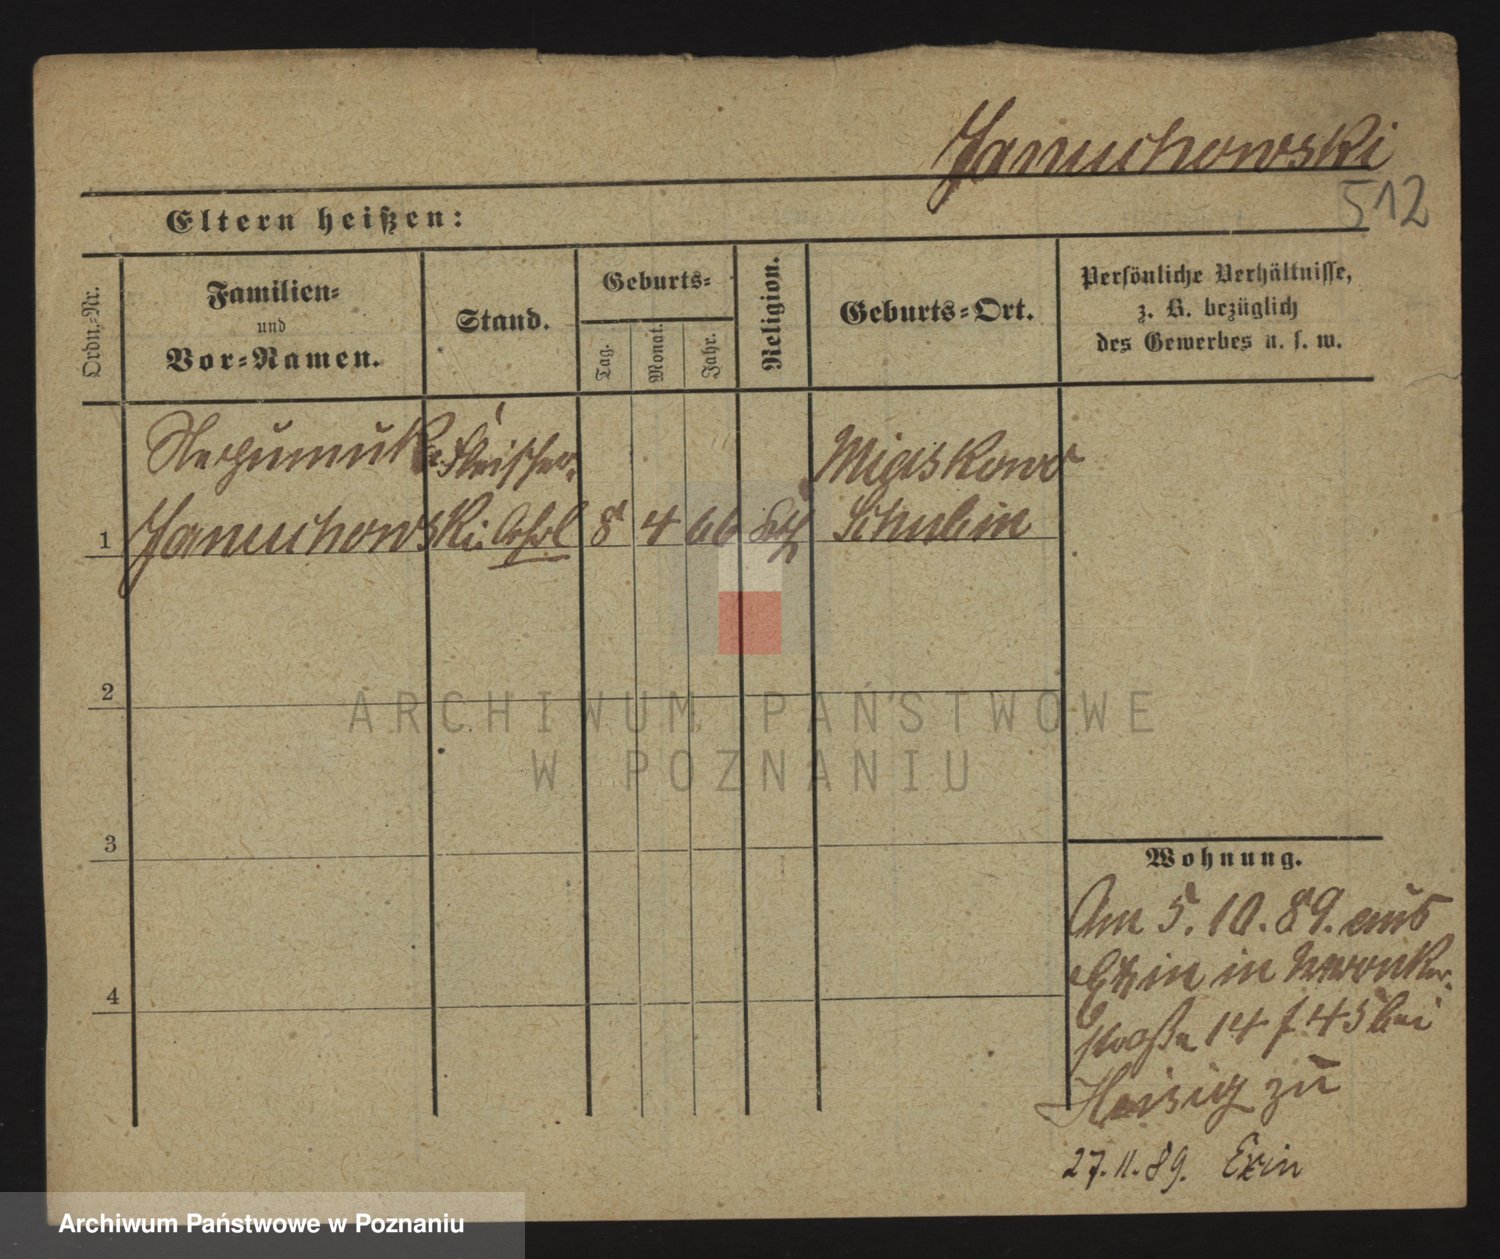 Januchowski
512
Eltern heißen:
Ordn.-Nr.
Familien-
und
Vor-Namen.
Stand.
Geburts-
Tag.
Monat.
Jahr.
Religion.
Geburts-Ort.
Persönliche Verhältnisse,
z. B. bezüglich
des Gewerbes u. s. w.
Nepumuk Fleischer
Januchowski 8 4 66 kth
Schubin
1
2
3
4
ARCHIWUM PAŃSTWOWE
W POZNANIU
Wohnung.
Am 5. 10. 89. aus
Exin in Wronker
straße 14 f. 45 bei
Heisig zu
27. 11. 89. Exin
Archiwum Państwowe w Poznaniu